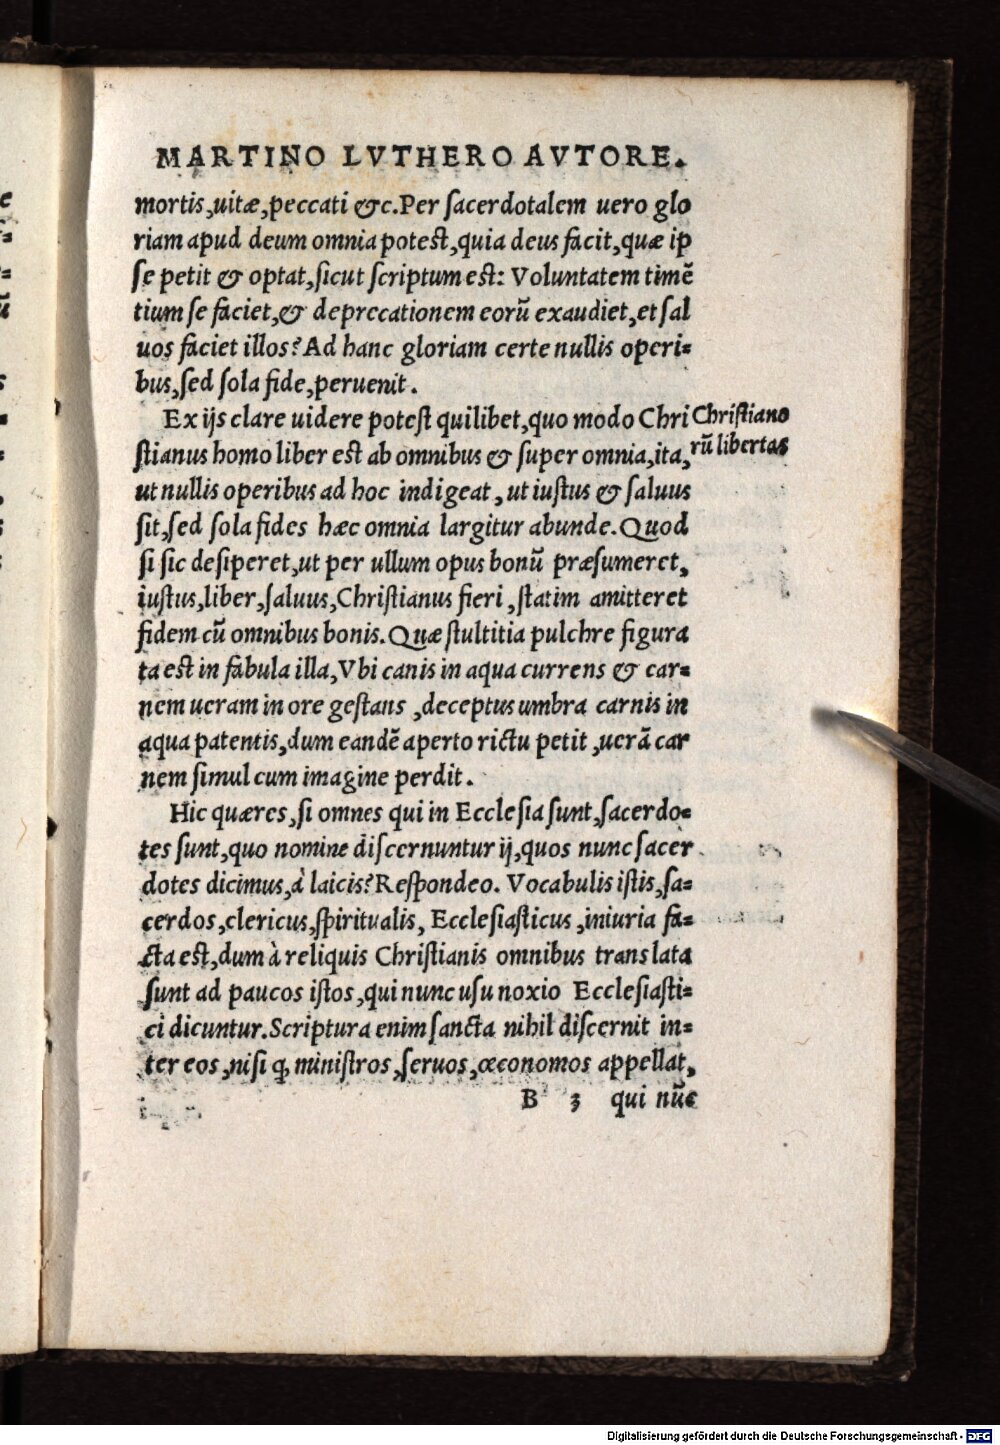 MARTINO LVTHERO AVTORE.
mortis, uitæ, peccati &c. Per sacerdotalem uero glo
riam apud deum omnia potest, quia deus facit, quæ ip
se petit & optat, sicut scriptum est: Voluntatem timẽ
tium se faciet, & deprecationem eorũ exaudiet, et sal
uos faciet illos? Ad hanc gloriam certe nullis operi=
bus, sed sola fide, peruenit.
Ex ijs clare uidere potest quilibet, quo modo Chri
Christiano
rũ libertas
stianus homo liber est ab omnibus & super omnia, ita,
ut nullis operibus ad hoc indigeat, ut iustus & saluus
sit, sed sola fides hæc omnia largitur abunde. Quod
si sic desiperet, ut per ullum opus bonũ præsumeret,
iustus, liber, saluus, Christianus fieri, statim amitteret
fidem cũ omnibus bonis. Quæ stultitia pulchre figura
ta est in fabula illa, Vbi canis in aqua currens & car=
nem ueram in ore gestans, deceptus umbra carnis in
aqua patentis, dum eandẽ aperto rictu petit, uerã car
nem simul cum imagine perdit.
Hic quæres, si omnes qui in Ecclesia sunt, sacerdo=
tes sunt, quo nomine discernuntur ij, quos nunc sacer
dotes dicimus, à laicis? Respondeo. Vocabulis istis, sa=
cerdos, clericus, spiritualis, Ecclesiasticus, iniuria fa=
cta est, dum à reliquis Christianis omnibus translata
sunt ad paucos istos, qui nunc usu noxio Ecclesiasti=
ci dicuntur. Scriptura enim sancta nihil discernit in=
ter eos, nisi ꝙ ministros, seruos, œconomos appellat,
B 3 qui nũc
Digitalisierung gefördert durch die Deutsche Forschungsgemeinschaft - DFG